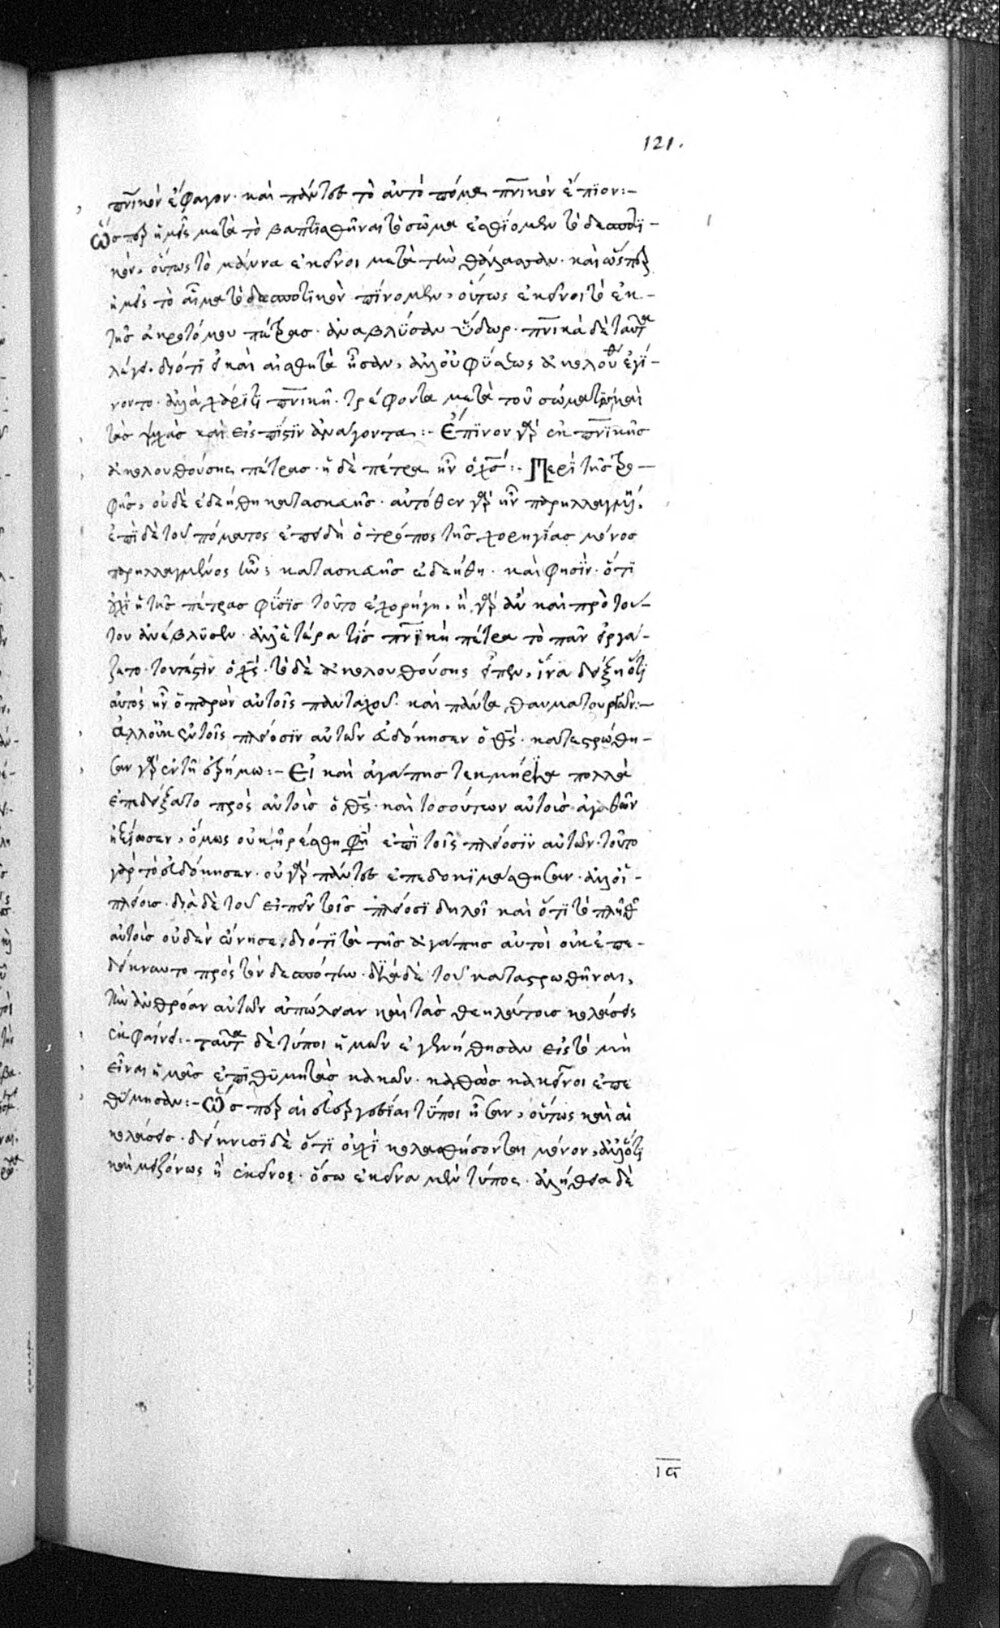 121.
πν̅ικὸν ἔφαγον· καὶ πάντες τὸ αὐτὸ πόμα πν̅ικὸν ἔπϊον:-
Ὥσπερ ἡμεῖς μετὰ τὸ βαπτϊσθῆναι τὸ σῶμα ἐσθίομεν τὸ δεσποτϊ-
κόν, οὕτως τὸ μάννα ἐκεῖνοι μετὰ τὴν θάλασσαν· καὶ ὥσπερ
ἡμεῖς τὸ αἷμα τὸ δεσποτικὸν πΐνομεν, οὕτως ἐκεῖνοι τὸ ἐκ-
τῆς ἀκροτόμου πέτρας· ἀναβλύσαν ὕδωρ· πν̅ικὰ δὲ ταῦτα
λέγει· διότϊ εἰ καὶ αἰσθητὰ ἦσαν, ἀλλ' οὐ φύσεως ἀκολουθ' ἐγί-
νοντο· ἀλλὰ χάρϊτϊ πν̅ικῆ· τρέφοντα μετὰ τοῦ σώματος καὶ
τὰς ψυχὰς καὶ εἰς πίστϊν ἀνάγοντα:- Ἔπϊνον γὰρ ἐκ πν̅ϊκῆς
ἀκολουθούσης πέτρας· ἡ δὲ πέτρα ἦν ὁ χς̅:- Περὶ τῆς τρο-
φῆς, οὐδὲ ἐδεήθη κατασκευῆς· αὐτόθεν γὰρ ἦν παρηλλαγμένη,
ἐπὶ δὲ τοῦ πόματος ἐπειδὴ ὁ τρόπος τῆς χορηγίας μόνος
παρηλλαγμένος ἦν, κατασκευῆς ἐδεήθη· καὶ φησϊν· ὅτϊ
οὐχὶ ἡ τῆς πέτρας φύσϊς τοῦτο ἐχορήγη, ἢ γὰρ ἂν καὶ πρὸ τού-
του ἀνέβλυσεν· ἀλλ' ἑτέρα τϊς πν̅ϊκὴ πέτρα τὸ πᾶν εἰργά-
ζετο· τουτέστιν ὁ χς̅· τὸ δὲ ἀκολουθούσης εἶπεν, ἵνα δείξη ὅτϊ
αὐτὸς ἦν ὁ παρὼν αὐτοῖς πανταχοῦ· καὶ πάντα θαυματουργῶν:-
Ἀλλ' οὐκ ἐν τοῖς πλείοσϊν αὐτῶν εὐδόκησεν ὁ θς̅· κατεστρώθη-
σαν γὰρ ἐν τῇ ἐρήμω:- Εἰ καὶ ἀγάπης τεκμήρϊα πολλὰ
ἐπεδείξατο πρὸς αὐτοὺς ὁ θς̅· καὶ τοσούτων αὐτοὺς ἀγαθῶν
ἠξίωσεν, ὅμως οὐκ ἠρέσθη φησὶ ἐπὶ τοῖς πλείοσϊν αὐτῶν· τοῦτο
γὰρ τὸ εὐδόκησεν· οὐ γὰρ πάντες ἐπεδοκιμάσθησαν· ἀλλ' οἱ
πλείους· διὰ δὲ τοῦ εἰπεῖν τοῖς πλείοσϊ δηλοῖ καὶ ὅτϊ τὸ πλῆθος
αὐτοὺς οὐδὲν ὤνησε, διότϊ τὰ τῆς ἀγάπης αὐτοὶ οὐκ ἐπε-
δείκνυντο πρὸς τὸν δεσπότην· δϊὰ δὲ τοῦ καταστρωθῆναι,
τὴν ἀθρόαν αὐτῶν ἀπώλειαν καὶ τὰς θεηλάτους κολάσεις
ἐκφαίνει:- ταῦτα δὲ τύποι ἡμῶν ἐγενήθησαν εἰς τὸ μὴ
εἶναι ἡμᾶς ἐπϊθϋμητὰς κακῶν· καθὼς κἀκεῖνοι ἐπε
θύμησαν:- Ὥσπερ αἱ εὐεργεσίαι τύποι ἦσαν, οὕτως καὶ αἱ
κολάσεις· δείκνυσϊ δὲ ὅτϊ οὐχὶ κολασθήσονται μόνον, ἀλλ' ὅτϊ
καὶ μειζόνως ἢ ἐκεῖνοι· ὅσω ἐκεῖνα μὲν τύπος· ἀλήθεια δὲ
ις̅